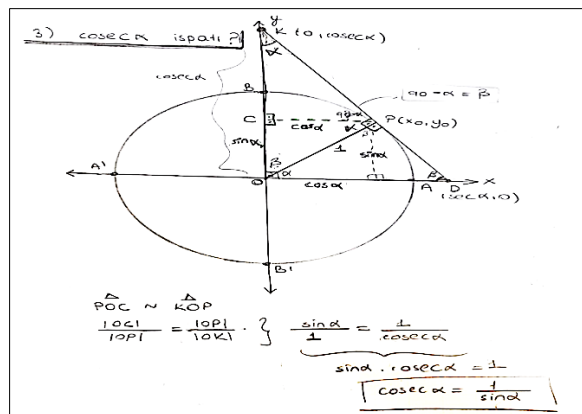 3) cosecα ispatı?
y
K (0, cosecα)
α
cosecα
B
90-α = β
C
90-α
P(x₀, y₀)
cosα
α
sinα
1
sinα
A'
β
α
β
x
O
cosα
A
D
(secα, 0)
B'
△ △
POC ~ KOP
|OC|/|OP| = |OP|/|OK| · } sinα/1 = 1/cosecα
sinα . cosecα = 1
cosecα = 1/sinα